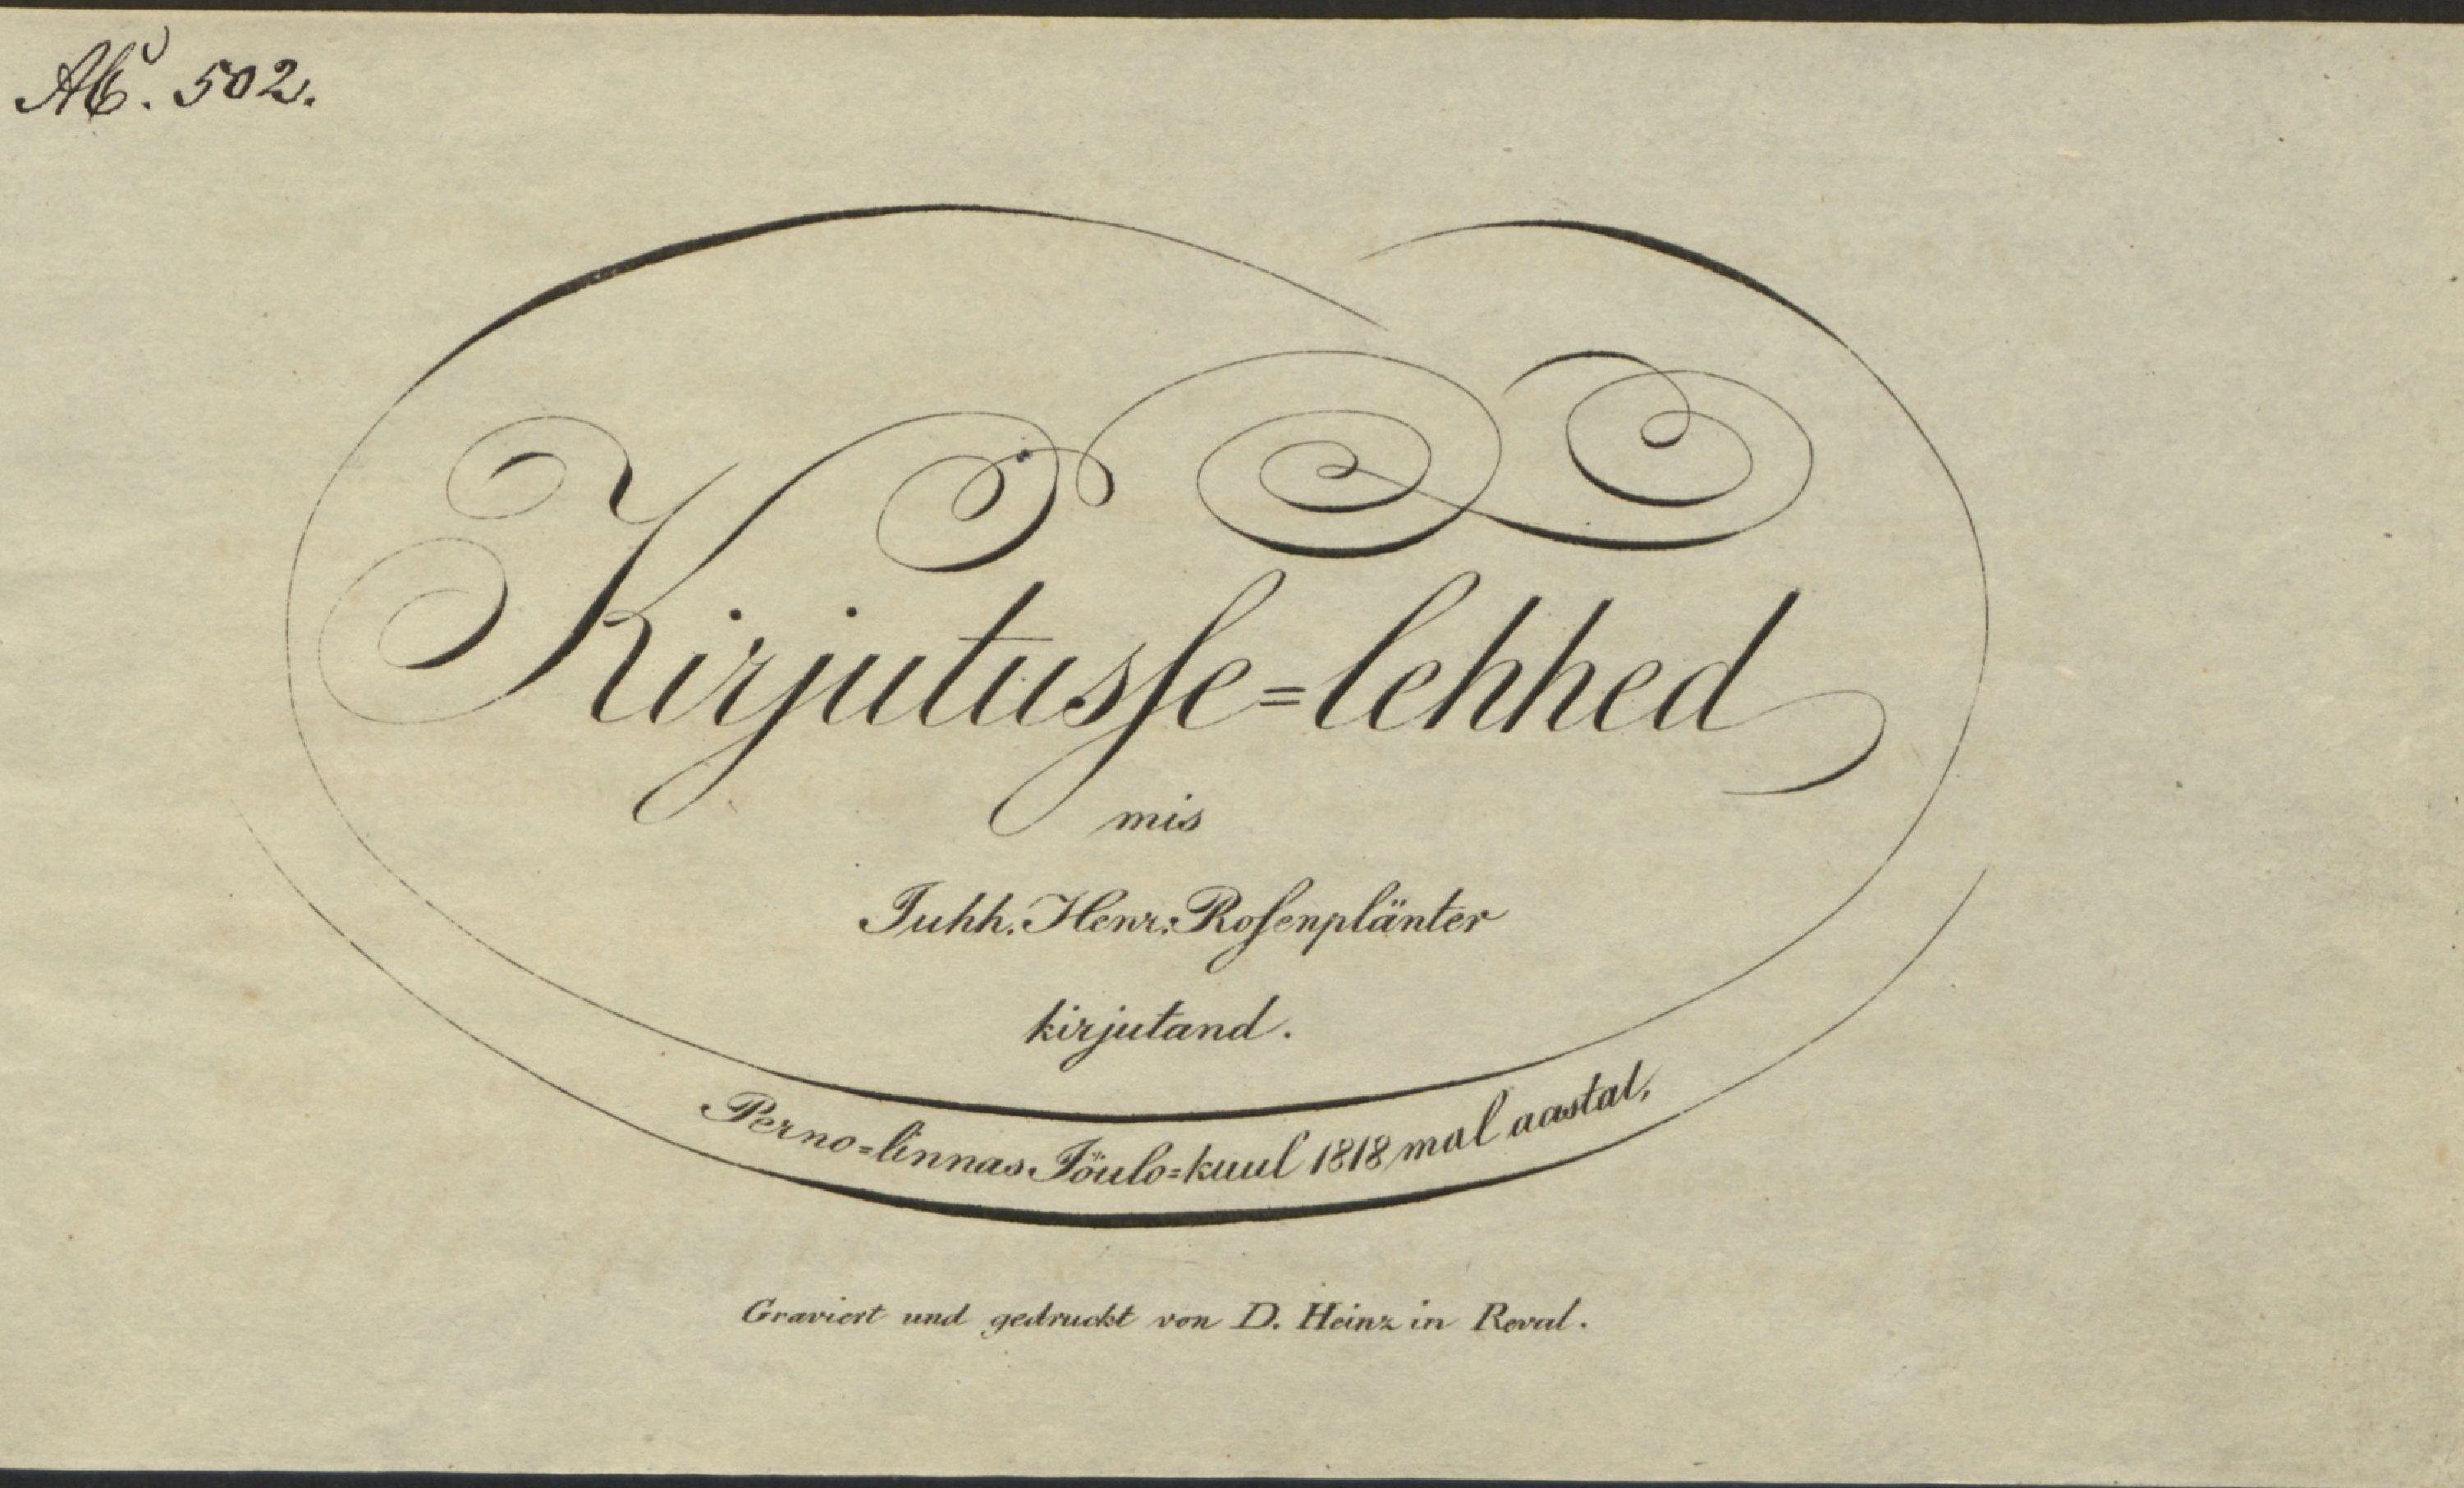 Ab. 502.
Kirjutusse=lehhed
mis
Juhh. Henr: Rosenplänter
kirjutand.
Perno=linnas Jöulo=kuul 1818 mal aastal,
Graviert und gedruckt von D. Heinz in Reval.